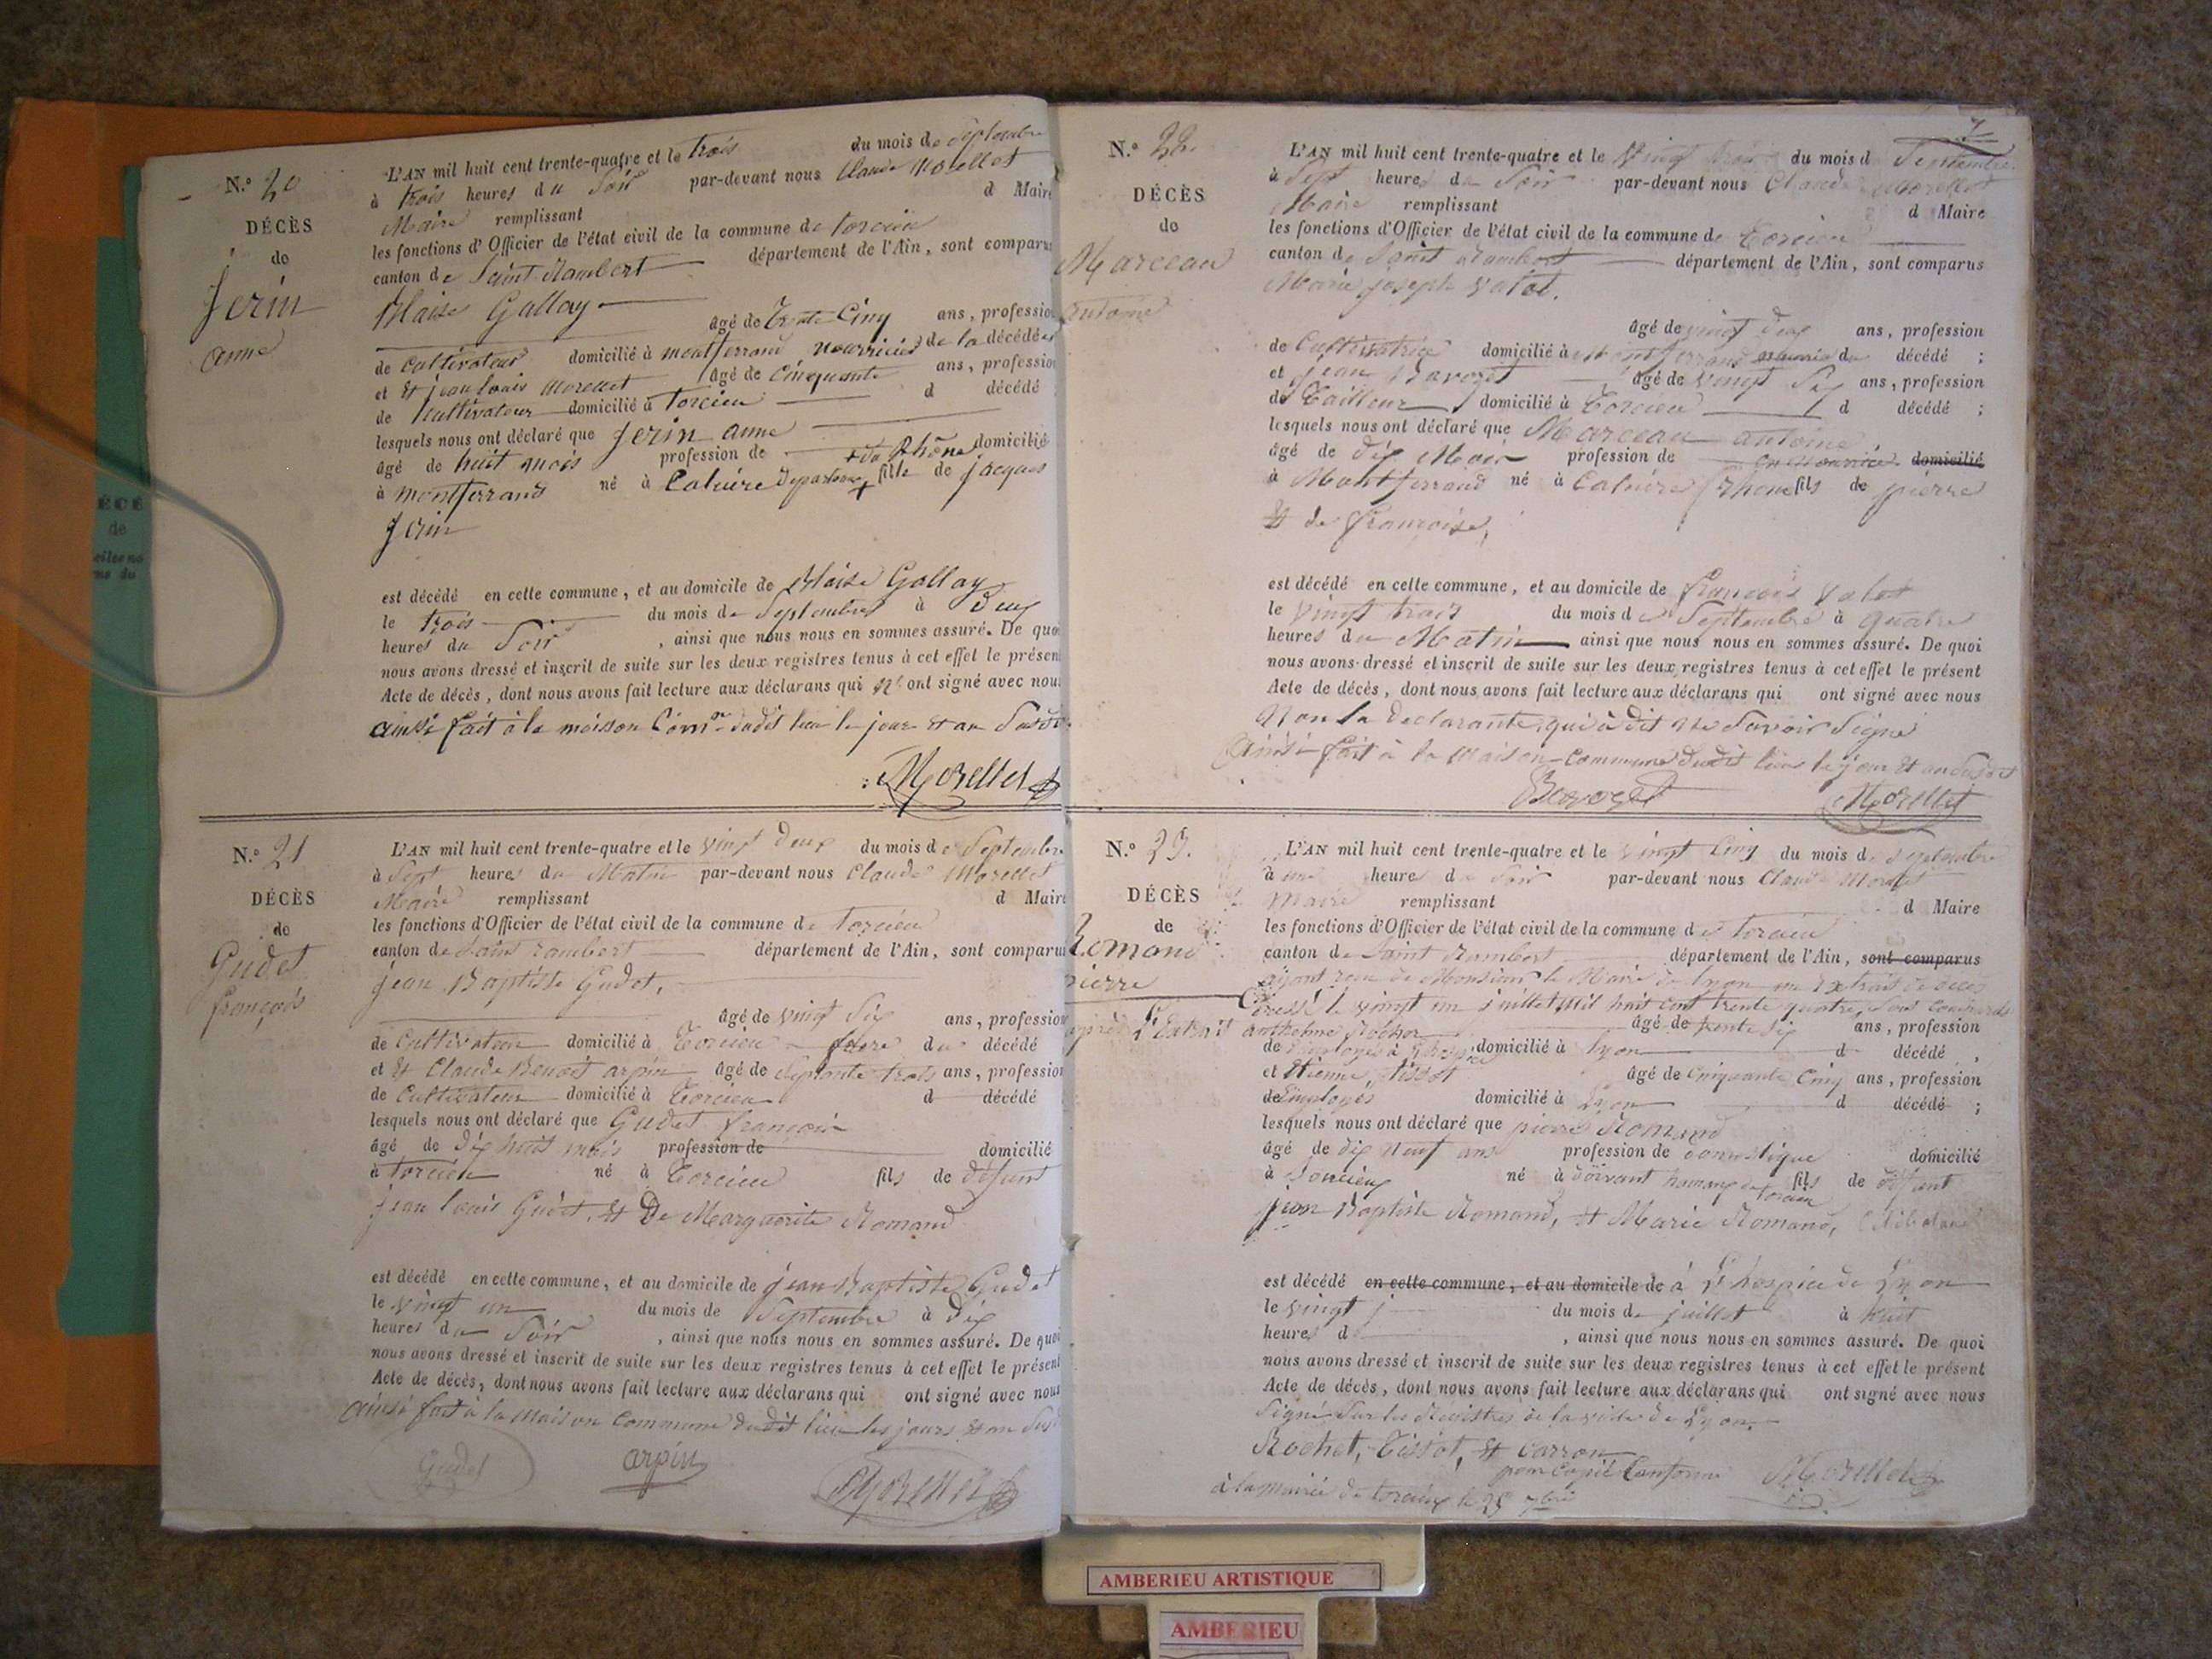 N.o 20
DÉCÈS
de
Jerin
anne
L'AN mil huit cent trente-quatre et le trois du mois de Septembre
à trois heures du Soir par-devant nous Claude Morellet
Maire remplissant d Maire
les fonctions d'Officier de l'état civil de la commune de torcieu
canton de Saint Rambert département de l'Ain, sont comparus
Blaise Gallay
âgé de trente Cinq ans, profession
de Cultivateur domicilié à montferrand nourricier de la décédée
et Et jean louis Morellet âgé de Cinquante ans, profession
de Cultivateur domicilié à torcieu d décédé
lesquels nous ont déclaré que Jerin anne
âgé de huit mois profession de + du Rhône domicilié
à montferrand né à Caluire departeme + fille de jacques
Jerin
est décédé en cette commune, et au domicile de Blaise Gallay
le trois du mois de Septembre à Deux
heures du Soir, ainsi que nous nous en sommes assuré. De quoi
nous avons dressé et inscrit de suite sur les deux registres tenus à cet effet le présent
Acte de décès, dont nous avons fait lecture aux déclarans qui n' ont signé avec nous
ainsi fait à la maison Comne dudit lieu le jour et an Susdit
Morellet
N.o 21
DÉCÈS
de
Gudet
françois
L'AN mil huit cent trente-quatre et le vingt Deux du mois de Septembre
à Sept heures du Matin par-devant nous Claude Morellet
Maire remplissant d Maire
les fonctions d'Officier de l'état civil de la commune de torcieu
canton de Saint rambert département de l'Ain, sont comparus
jean Baptiste Gudet,
âgé de vingt Six ans, profession
de Cultivateur domicilié à Torcieu frere du décédé
et Et Claude Benoit arpin âgé de Septante trois ans, profession
de Cultivateur domicilié à Torcieu d décédé
lesquels nous ont déclaré que Gudet françois
âgé de Dix huit mois profession de domicilié
à torcieu né à Torcieu fils de défunt
jean louis Gudet, Et De Marguerite Romand
est décédé en cette commune, et au domicile de jean Baptiste Gudet
le vingt un du mois de Septembre à Dix
heures du Soir, ainsi que nous nous en sommes assuré. De quoi
nous avons dressé et inscrit de suite sur les deux registres tenus à cet effet le présent
Acte de décès, dont nous avons fait lecture aux déclarans qui ont signé avec nous
ainsi fait à la Maison Commune dudit lieu les jours et an Susd
Gudet arpin Morellet
7
N.o 22.
DÉCÈS
de
Marceau
antoine
L'AN mil huit cent trente-quatre et le Vingt trois du mois d Septembre
à Sept heures du Soir par-devant nous Claude Morellet
Maire remplissant d Maire
les fonctions d'Officier de l'état civil de la commune de Torcieu
canton de Saint Rambert département de l'Ain, sont comparus
Marie joseph Valot.
âgé de vingt deux ans, profession
de Cultivatrice domicilié à Montferrand nourrice du décédé ;
et jean âgé de vingt Six ans, profession
de Tailleur domicilié à Torcieu d décédé ;
lesquels nous ont déclaré que Marceau antoine
âgé de Dix Mois profession de en nourrice domicilié
à Montferrand né à Caluire Rhône fils de pierre
Et de françoise,
est décédé en cette commune, et au domicile de françois Valot
le vingt trois du mois de Septembre à quatre
heures du Matin ainsi que nous nous en sommes assuré. De quoi
nous avons dressé et inscrit de suite sur les deux registres tenus à cet effet le présent
Acte de décès, dont nous avons fait lecture aux déclarans qui ont signé avec nous
Non la declarante, qui à dit ne Savoir Signé
ainsi fait à la Maison Commune dudit lieu le jour Et an Susdit
Morellet
N.o 23.
DÉCÈS
de
Romand
pierre
L'Extrait
L'AN mil huit cent trente-quatre et le vingt Cinq du mois de Septembre
à une heure du Soir par-devant nous Claude Morellet
Maire remplissant d Maire
les fonctions d'Officier de l'état civil de la commune de torcieu
canton de Saint Rambert département de l'Ain, sont comparus
ayant reçu de Monsieur le Maire de lyon un Extrait de décès
Dressé le vingt un juillet Mil huit cent trente quatre, Sont comparus
anthelme Rochet âgé de trente Six ans, profession
de Employés à domicilié à lyon d décédé ,
et Etienne tissot âgé de Cinquante Cinq ans, profession
de Employés domicilié à Lyon d décédé ;
lesquels nous ont déclaré que pierre Romand
âgé de dix Neuf ans profession de domestique domicilié
à né à torcieu fils de défunt
jean Baptiste Romand, Et Marie Romand,
est décédé en cette commune, et au domicile de à l'hospice de Lyon
le vingt du mois de juillet à huit
heures d , ainsi que nous nous en sommes assuré. De quoi
nous avons dressé et inscrit de suite sur les deux registres tenus à cet effet le présent
Acte de décès, dont nous avons fait lecture aux déclarans qui ont signé avec nous
Signé Sur les Régistres de la ville de Lyon,
Rochet, Tissot, Et Carron
pour Copie Conforme Morellet
à la mairie de torcieu le 25 7bre
AMBERIEU ARTISTIQUE
AMBERIEU